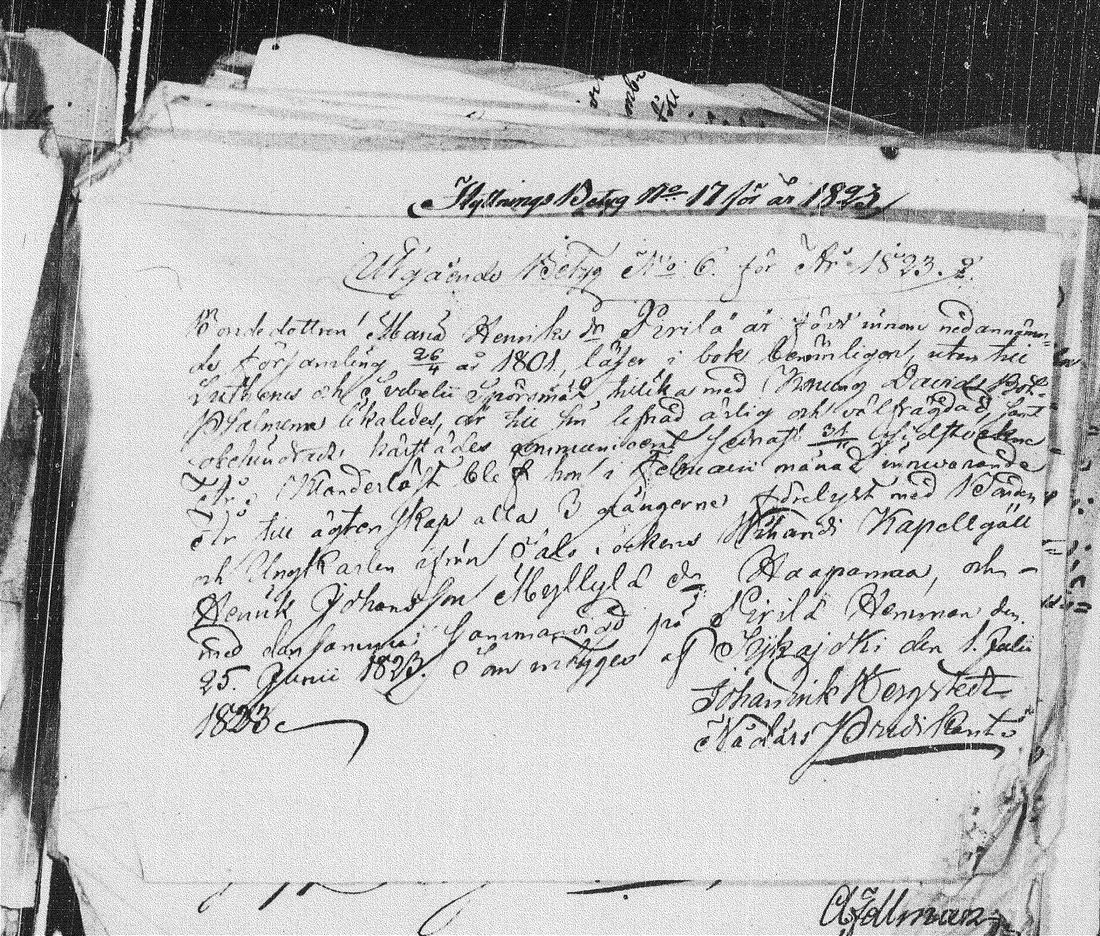 Flyttnings Betyg No 17 för år 1823
Utgående Betyg No 6. för År 1823.
Bondedottren Maria Henriks dr Pirilä är född innom nedannämn-
de församling 26/4 år 1801, läser i bok, utan till
Lutheri och Svebelii Spörsmål tillika med Konung Davids Bot-
Psalmer likaledes, är till sin lefnad ärlig och välfrägdad, samt
obehindrad, Nattvards communicent senast 31
År. Manderläst blef hon i Februarii månad innevarande
År till ägtenskap alla 3 gångerne förelyst med Bonden
och Ungkarlen ifrån Salo Sockens Vihandi Kapellgäll
Henrik Johansson Myllylä Haapamaa, och
med densamma sammanvigd på Pirilä Hemman den
25. Junii 1823. Som intygas af Sijkajocki den 1. Julii
1823
Joh Henrik Bergstedt
Nådårs Predikant